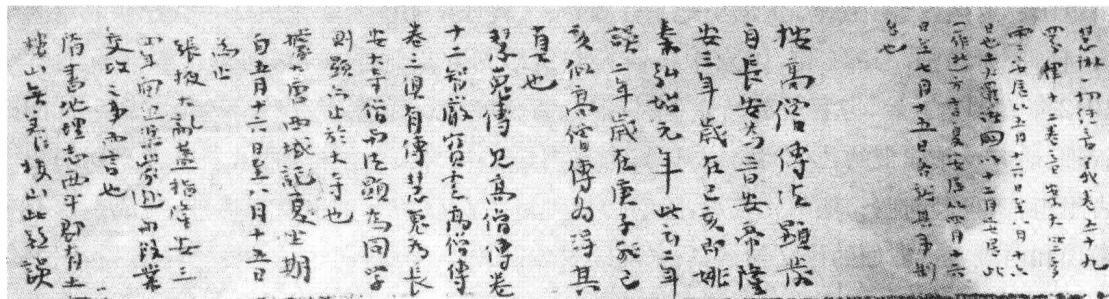 慧琳一切經音義卷五十九
四分律十二卷云安居
安居以五月十六日至八月十五
日也土火羅諸國以十二月安居此
一方言夏安居以四月十六
日至七月十五日各就其事制
名也
按高僧傳法顯發
自長安為晉安帝隆
安三年歲在己亥即姚
秦弘始元年此云二年
誤二年歲在庚子非己
亥似高僧傳為得其
真也
慧嵬傳見高僧傳卷
十二智嚴寶雲高僧傳
卷三俱有傳慧嵬為長
安大寺僧而法顯為同學
則顯亦止於大寺也
據大唐西域記夏坐期
自五月十六日至八月十五日
為止
張掖大亂蓋指隆安三
四年間沮渠蒙遜與段業
交攻之事而言也
隋書地理志西平郡有土
樓山無養樓山此疑誤